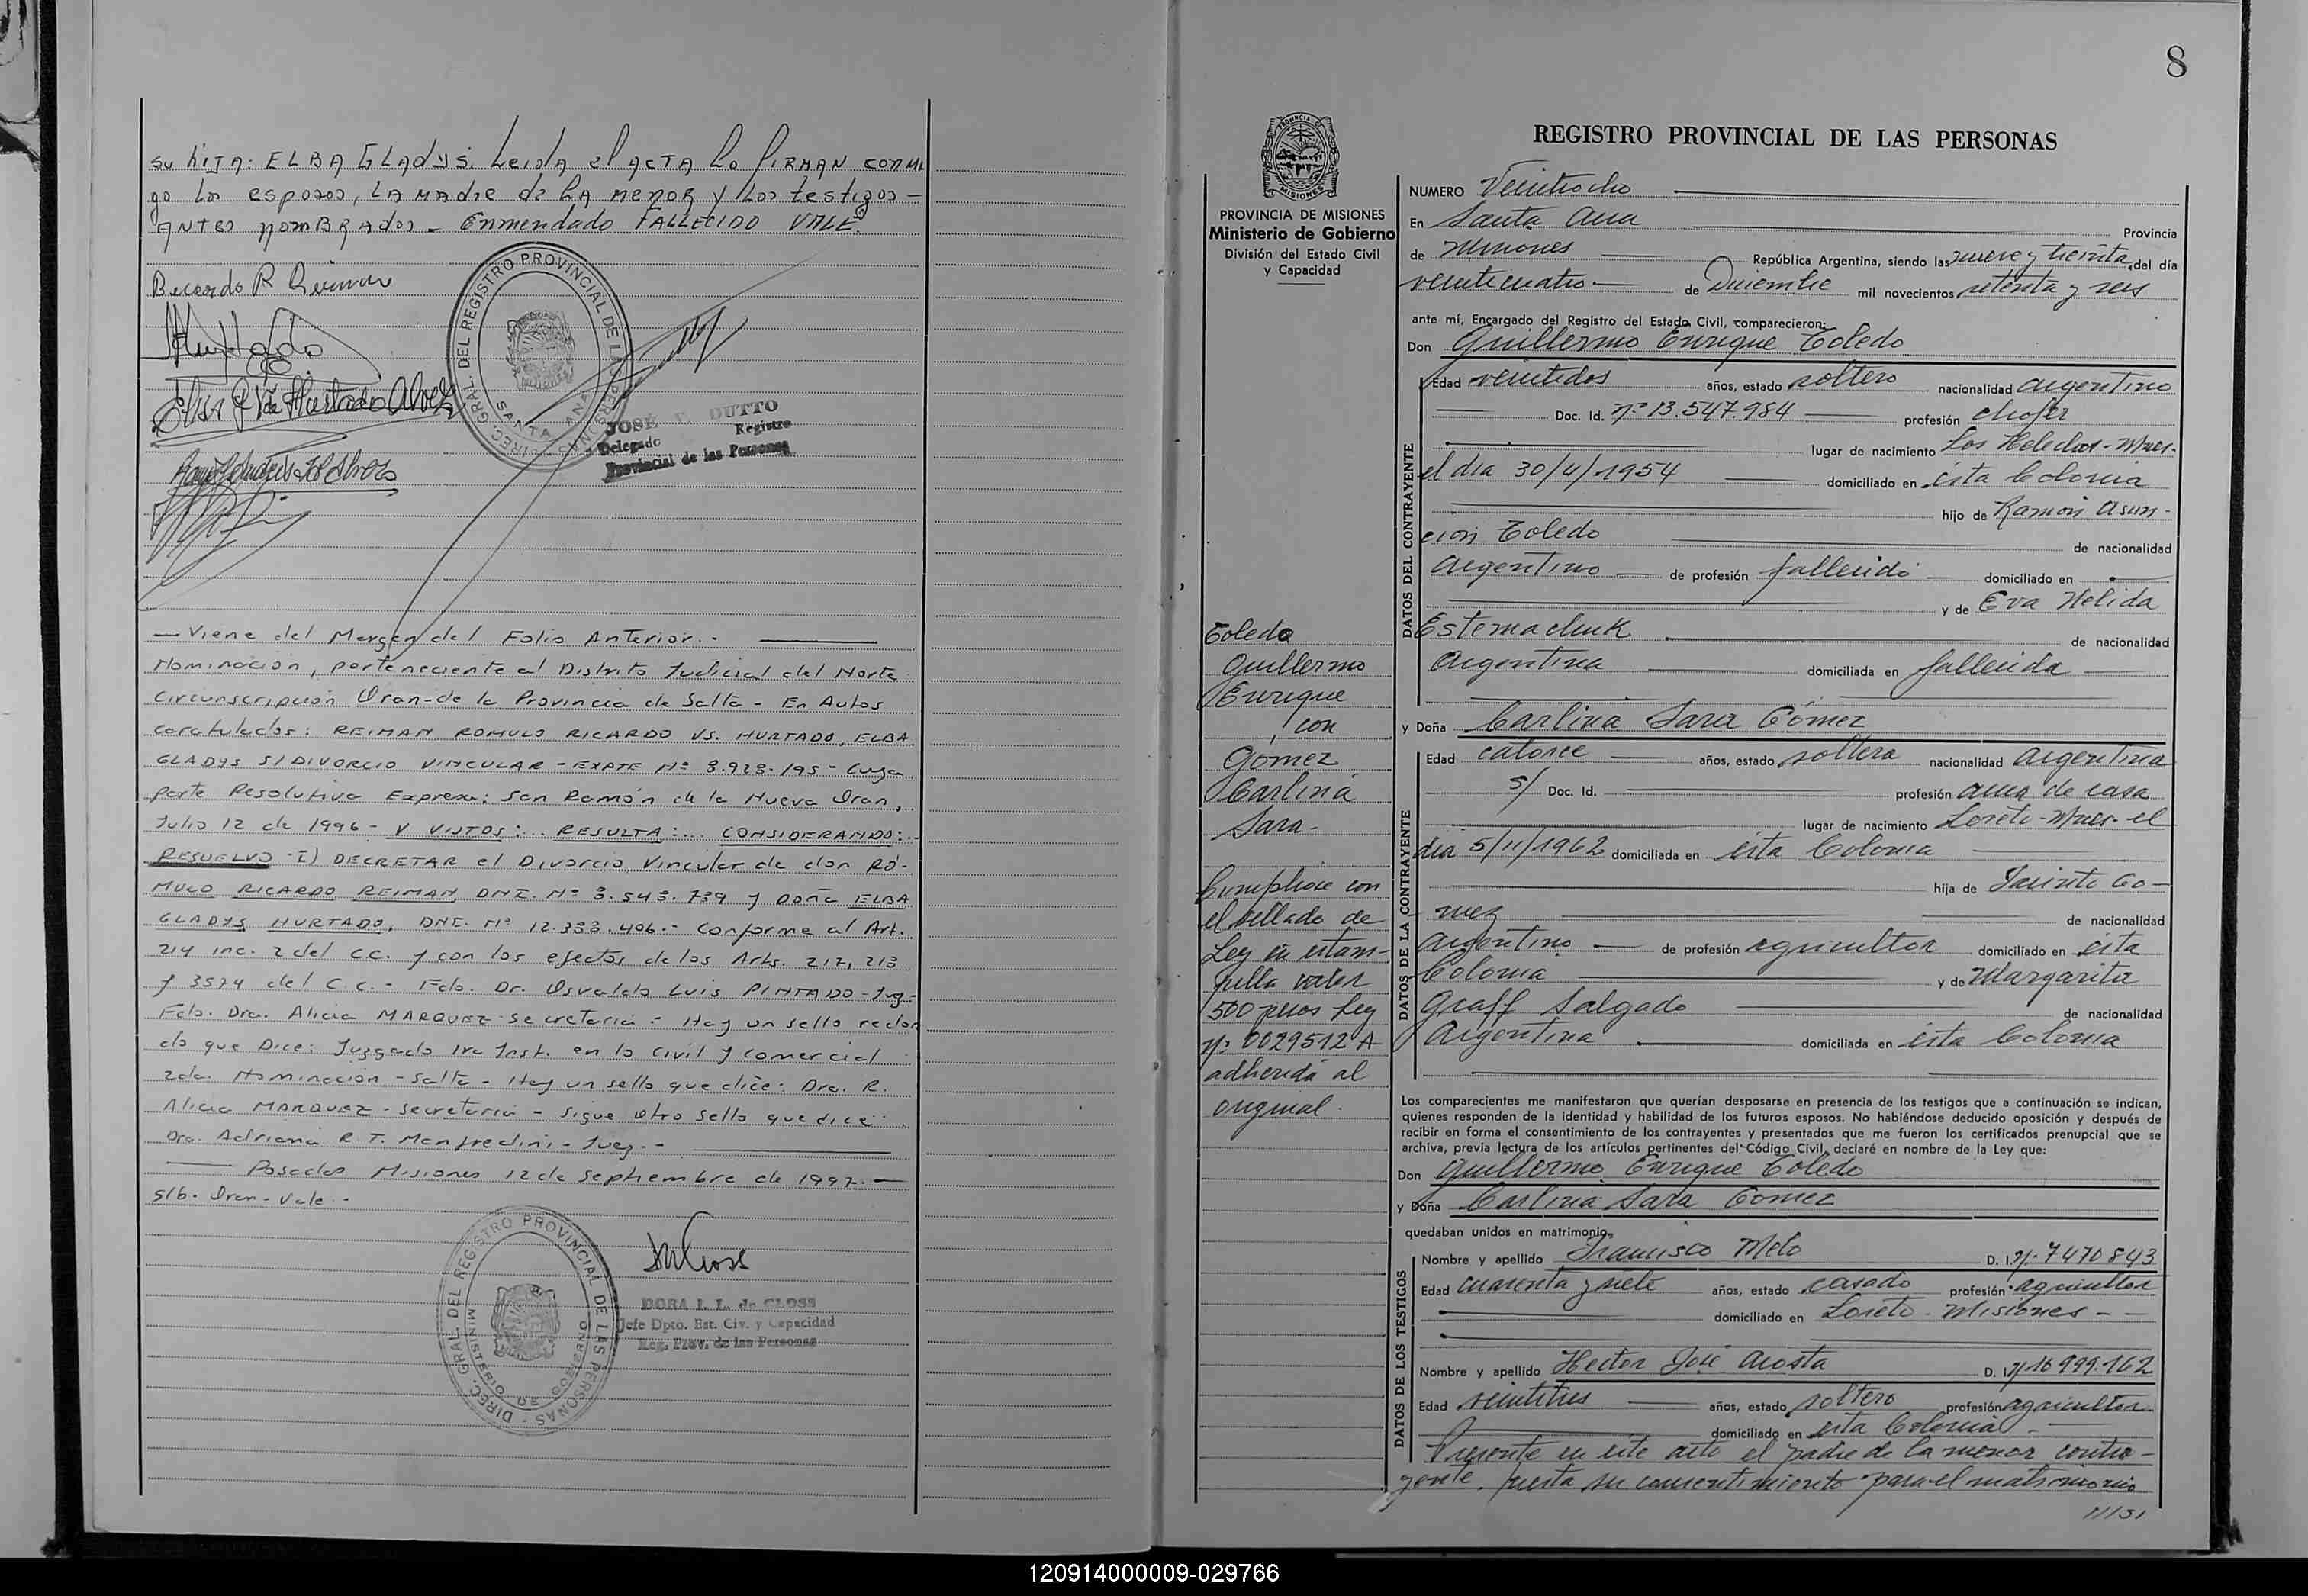 su hiJA: ELBA GLAdyS. Leida el ACTA Lo FIRMAN CONMI
go los esposos, LA MAdre de LA MENOR y Los testigos —
ANTES NOMBRAdos — Enmendado FALLECIDO VALE.
DIREC. GRAL. DEL REGISTRO PROVINCIAL DE LAS PERSONAS
SANTA ANA
JOSE F. DUTTO
Delegado Registro
Provincial de las Personas
— Viene del Margen del Folio Anterior.-
Nominación, perteneciente al Distrito Judicial del Norte
circunscripción Oran-de la Provincia de Salta - En Autos
caratulados: REIMAN ROMULO RICARDO VS. HURTADO, ELBA
GLADYS S/DIVORCIO VINCULAR - EXPTE Nº 3.923/95 - Cuya
parte Resolutiva Expresa: San Ramón de la Nueva Oran,
Julio 12 de 1996 - Y VISTOS:... RESULTA:... CONSIDERANDO:..
RESUELVO I) DECRETAR el Divorcio Vincular de don RO-
MULO RICARDO REIMAN, DNI. Nº 8.543.739 y Doña ELBA
GLADYS HURTADO, DNI. Nº 12.333.406.- Conforme al Art.
214 inc. 2 del CC. y con los efectos de los Arts. 217, 213
y 3574 del C.C.- Fdo. Dr. Osvaldo Luis PINTADO - Juez-
Fdo. Dra. Alicia MARQUEZ - Secretaria - Hay un sello redon
do que Dice: Juzgado 1ra Inst. en lo Civil y Comercial
2da. Nominación - Salta - Hay un sello que dice: Dra. R.
Alicia MARQUEZ - Secretaria - Sigue otro sello que dice
Dra. Adriana R. T. Manfredini - Juez.-
— Posadas Misiones 12 de Septiembre de 1997.—
s/b. Oran - Vale.-
DIREC. GRAL. DEL REGISTRO PROVINCIAL DE LAS PERSONAS
MINISTERIO DE GOBIERNO
DORA I. L. de CLOSS
Jefe Dpto. Est. Civ. y Capacidad
Reg. Prov. de las Personas
8
PROVINCIA DE MISIONES
Ministerio de Gobierno
División del Estado Civil
y Capacidad
Toledo
Guillermo
Enrique
con
Gómez
Carlina
Sara-
Cumplióse con
el sellado de
Ley en estam-
pilla valor
500 pesos Ley
nº 0029512 A
adherida al
original.
REGISTRO PROVINCIAL DE LAS PERSONAS
NUMERO Veintiocho
En Santa Ana Provincia
de Misiones República Argentina, siendo las nueve y treinta, del día
veinticuatro de Diciembre mil novecientos setenta y seis
ante mí, Encargado del Registro del Estado Civil, comparecieron:
Don Guillermo Enrique Toledo
DATOS DEL CONTRAYENTE
Edad veintidos años, estado soltero nacionalidad argentino
Doc. Id. nº 13.547.984 profesión chofer
lugar de nacimiento Los Helechos - Mnes.
el dia 30/4/1954 domiciliado en ésta Colonia
hijo de Ramón Asun-
ción Toledo de nacionalidad
Argentino de profesión fallecido domiciliado en
y de Eva Nelida
Estemachuk de nacionalidad
Argentina domiciliada en fallecida
y Doña Carlina Sara Gómez
DATOS DE LA CONTRAYENTE
Edad catorce años, estado soltera nacionalidad argentina
s/ Doc. Id. profesión ama de casa
lugar de nacimiento Loreto - Mnes. el
dia 5/11/1962 domiciliada en ésta Colonia
hija de Jacinto Gó-
mez de nacionalidad
Argentino de profesión agricultor domiciliado en ésta
Colonia y de Margarita
Graff Salgado de nacionalidad
Argentina domiciliada en ésta Colonia
Los comparecientes me manifestaron que querían desposarse en presencia de los testigos que a continuación se indican,
quienes responden de la identidad y habilidad de los futuros esposos. No habiéndose deducido oposición y después de
recibir en forma el consentimiento de los contrayentes y presentados que me fueron los certificados prenupcial que se
archiva, previa lectura de los artículos pertinentes del Código Civil, declaré en nombre de la Ley que:
Don Guillermo Enrique Toledo
y Doña Carlina Sara Gomez
quedaban unidos en matrimonio.
DATOS DE LOS TESTIGOS
Nombre y apellido Francisco Melo D. I. nº 7470843
Edad cuarenta y siete años, estado casado profesión agricultor
domiciliado en Loreto - Misiones - -
Nombre y apellido Hector José Acosta D. I. nº 10.999.162
Edad veintitres años, estado soltero profesión agricultor
domiciliado en ésta Colonia -
Presente en este acto el padre de la menor contra-
yente, presta su consentimiento para el matrimonio
///si
120914000009-029766